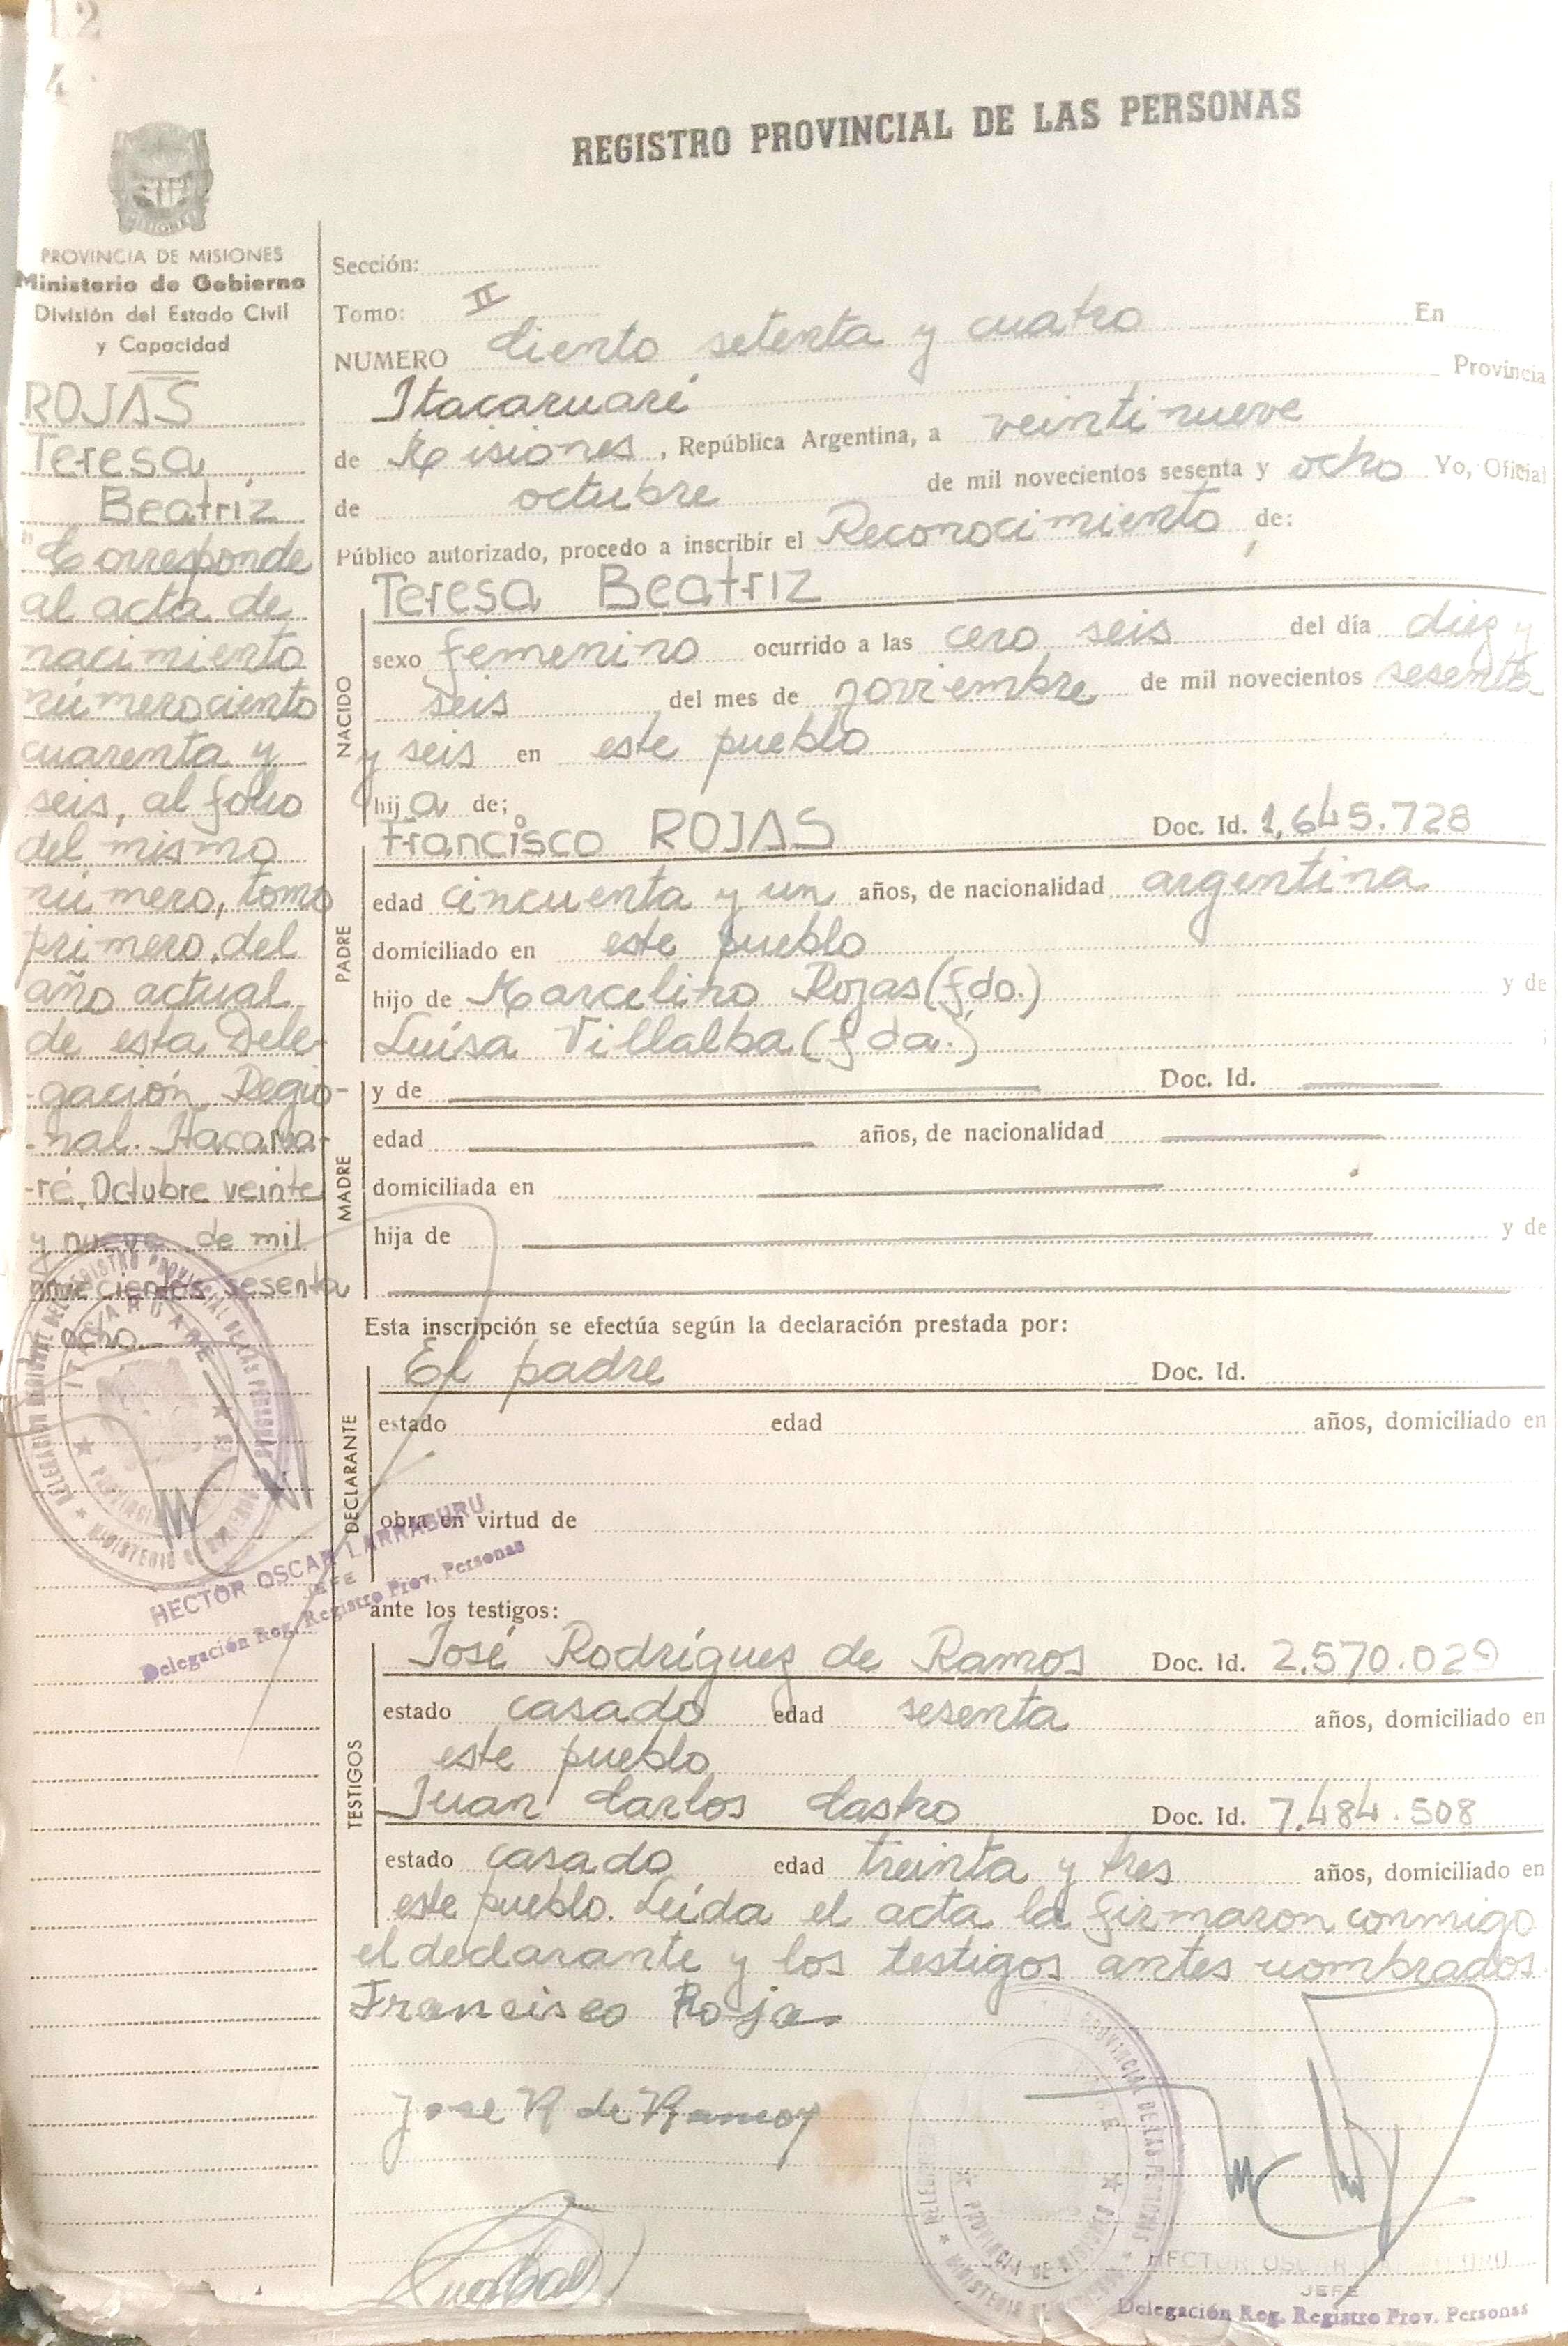 12
4
REGISTRO PROVINCIAL DE LAS PERSONAS
PROVINCIA DE MISIONES
Ministerio de Gobierno
División del Estado Civil
y Capacidad
ROJAS
Teresa
Beatriz
"Corresponde
al acta de
nacimiento
número ciento
cuarenta y
seis, al folio
del mismo
número, tomo
primero, del
año actual
de esta Dele-
-gación Regio-
-nal. Itacarua-
-ré, Octubre veinte
y nueve de mil
novecientos sesenta
y ocho
HECTOR OSCAR LARRABURU
JEFE
Delegación Reg. Registro Prov. Personas
Sección:
Tomo: II
NUMERO Ciento setenta y cuatro En
Itacaruaré Provincia
de Misiones, República Argentina, a veintinueve
de octubre de mil novecientos sesenta y ocho Yo, Oficial
Público autorizado, procedo a inscribir el Reconocimiento de:
NACIDO
Teresa Beatriz
sexo femenino ocurrido a las cero seis del día diez y
seis del mes de noviembre de mil novecientos sesenta
y seis en este pueblo
hija de;
PADRE
Francisco ROJAS Doc. Id. 1,645.728
edad cincuenta y un años, de nacionalidad argentina
domiciliado en este pueblo
hijo de Marcelino Rojas (fdo.) y de
Luisa Villalba (fda.)
MADRE
y de Doc. Id.
edad años, de nacionalidad
domiciliada en
hija de y de
Esta inscripción se efectúa según la declaración prestada por:
DECLARANTE
El padre Doc. Id.
estado edad años, domiciliado en
obra en virtud de
ante los testigos:
TESTIGOS
José Rodríguez de Ramos Doc. Id. 2.570.029
estado casado edad sesenta años, domiciliado en
este pueblo
Juan Carlos Castro Doc. Id. 7.484.508
estado casado edad treinta y tres años, domiciliado en
este pueblo. Leída el acta la firmaron conmigo
el declarante y los testigos antes nombrados.
Francisco Rojas
Jose R de Ramos
HECTOR OSCAR
JEFE
Delegación Reg. Registro Prov. Personas